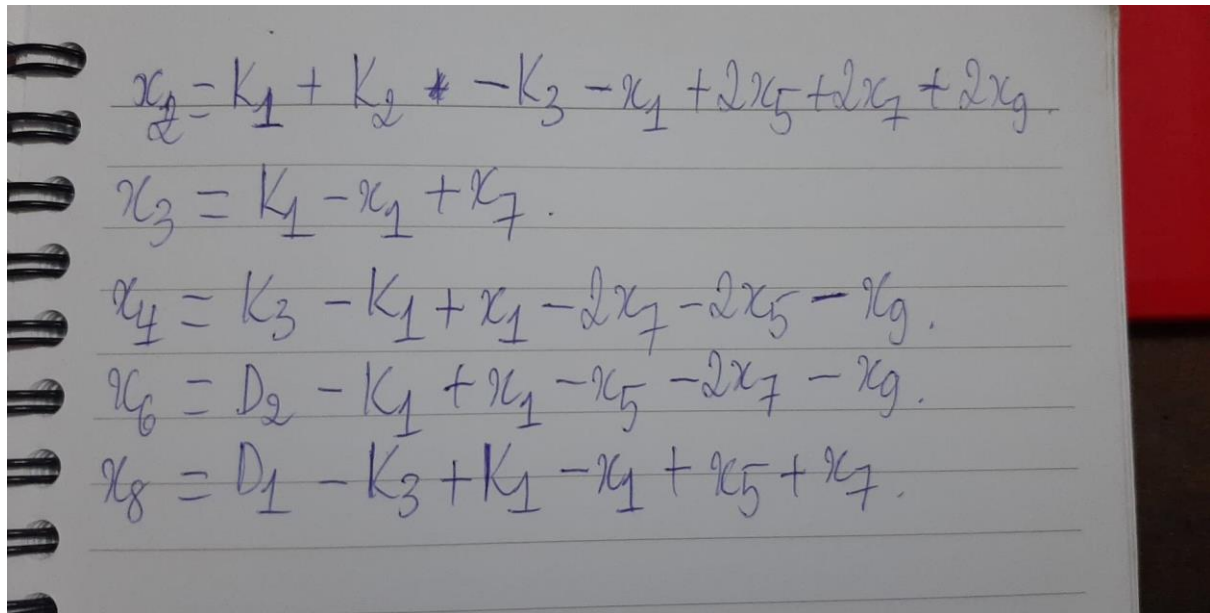 x₂ = K₁ + K₂ - K₃ - x₁ + 2x₅ + 2x₇ + 2x₉.
x₃ = K₁ - x₁ + x₇.
x₄ = K₃ - K₁ + x₁ - 2x₇ - 2x₅ - x₉.
x₆ = D₂ - K₁ + x₁ - x₅ - 2x₇ - x₉.
x₈ = D₁ - K₃ + K₁ - x₁ + x₅ + x₇.